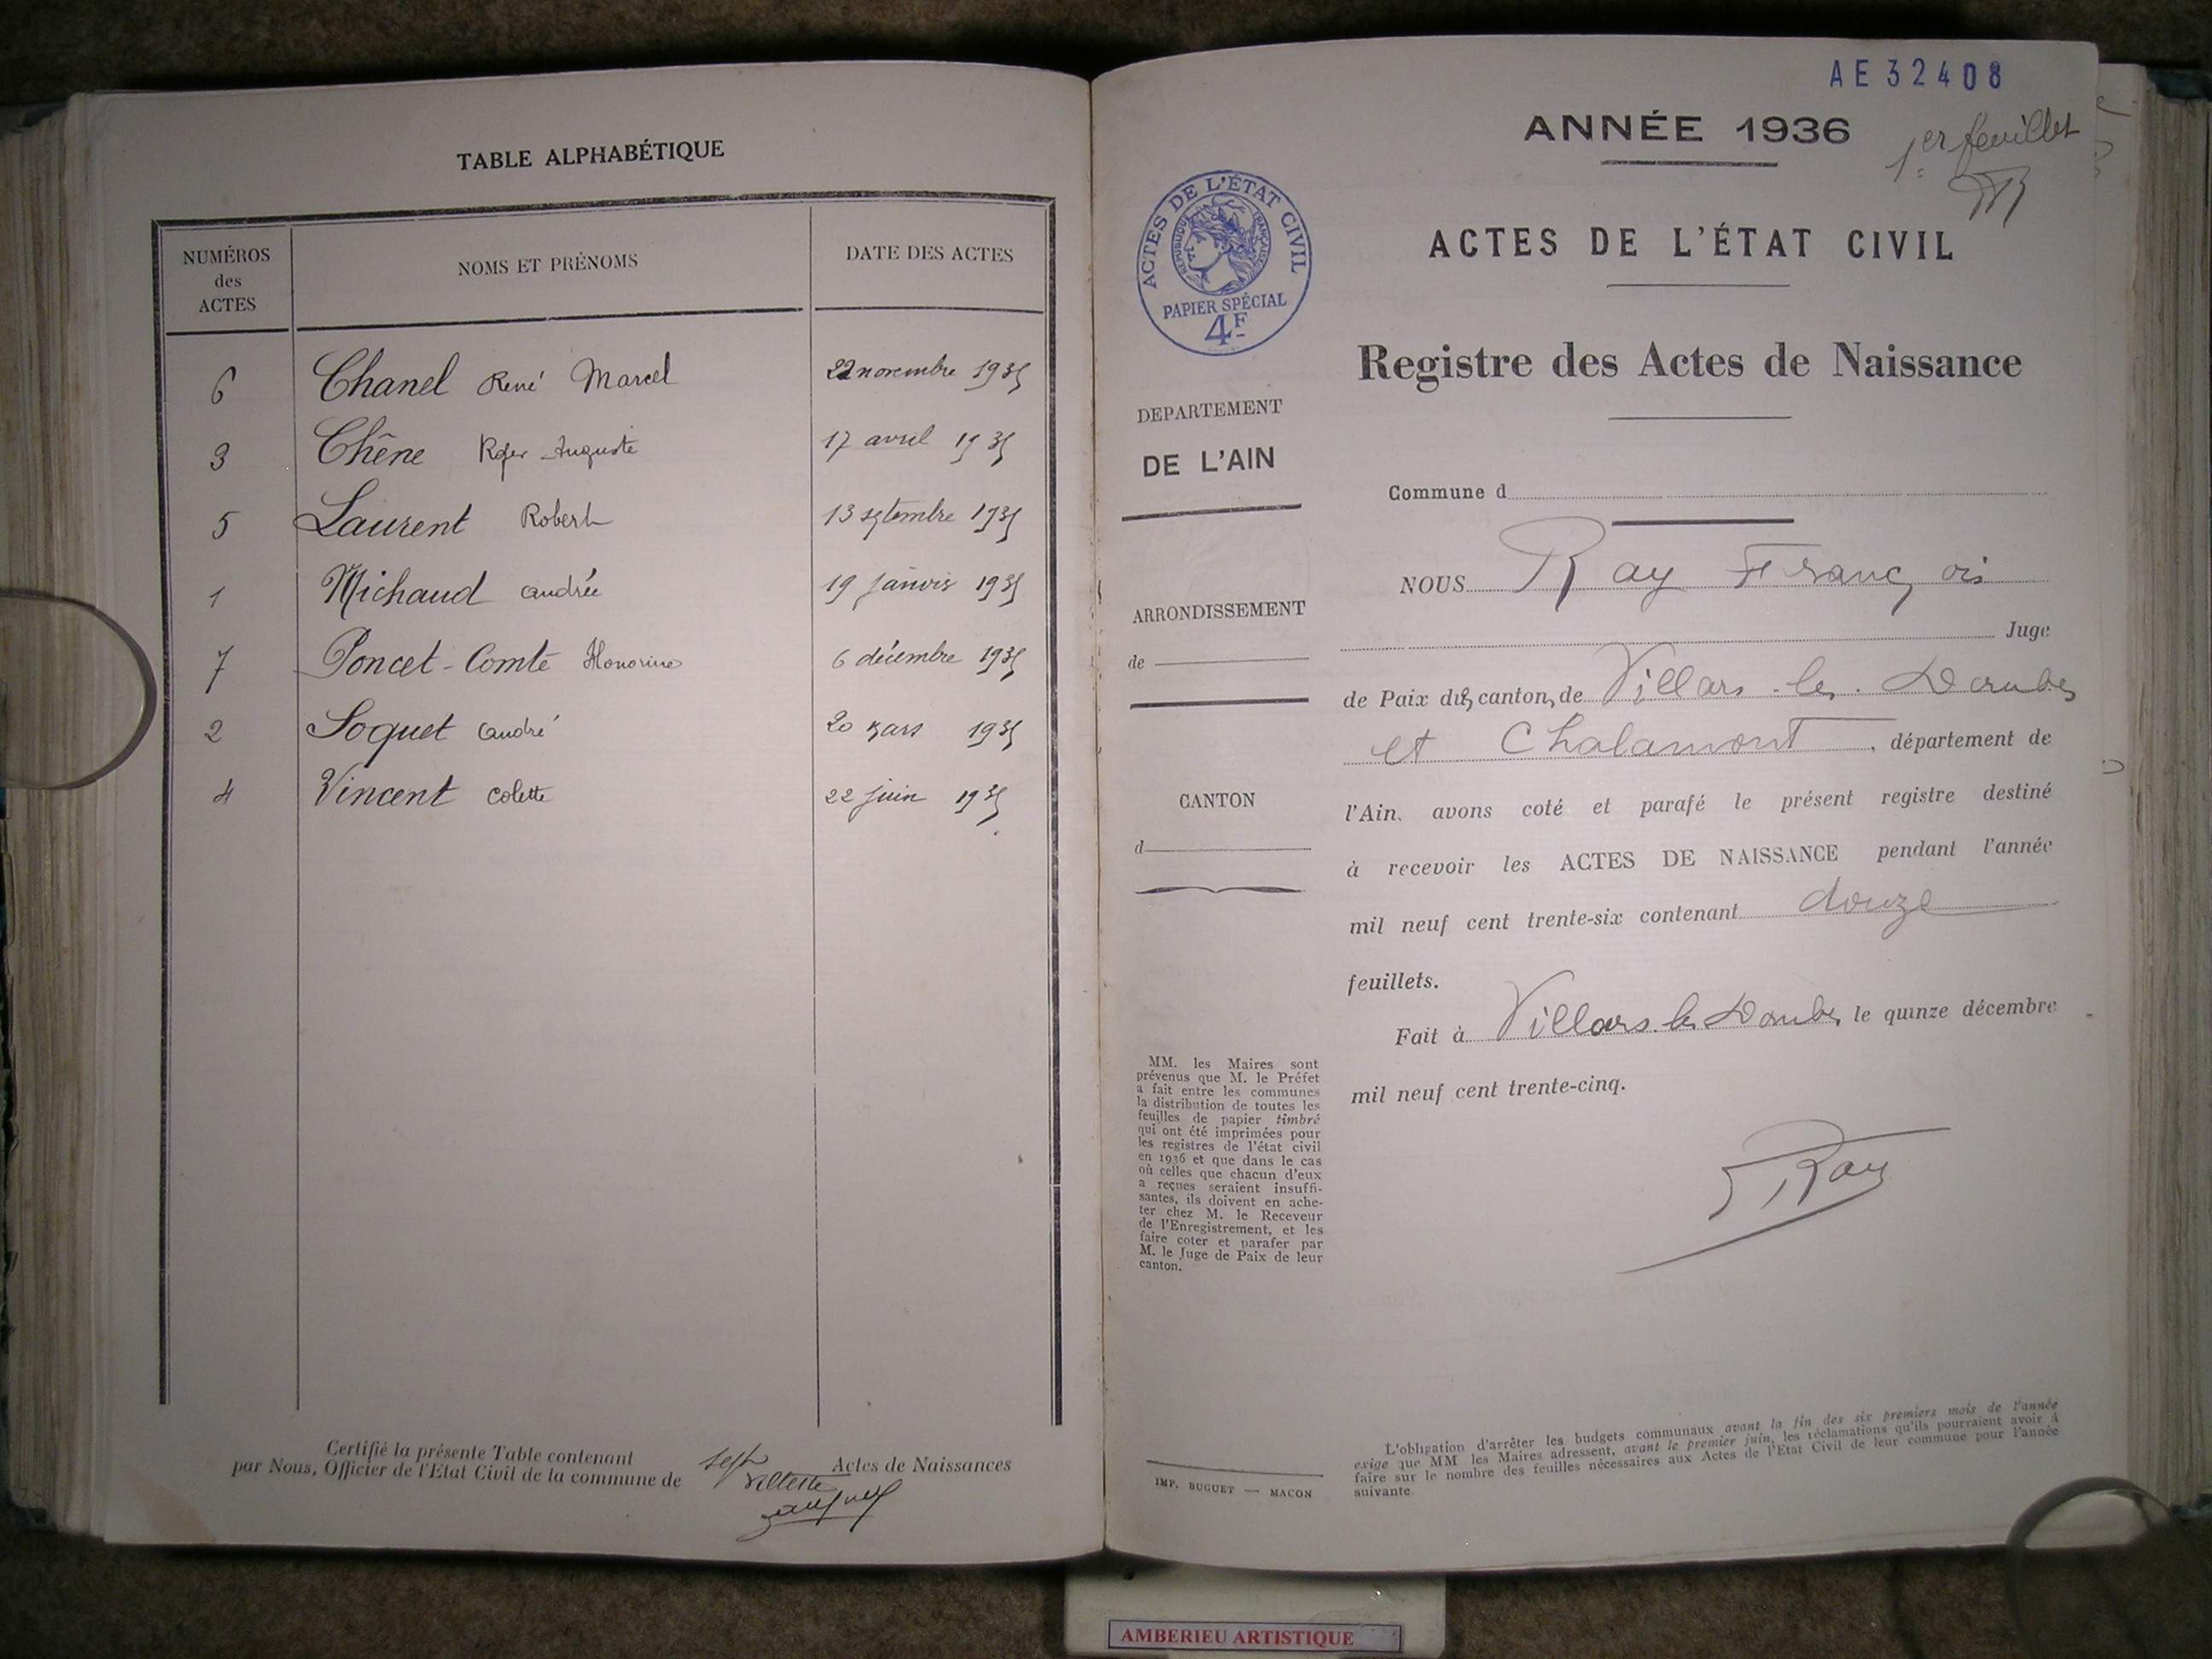 TABLE ALPHABÉTIQUE
NUMÉROS des ACTES
NOMS ET PRÉNOMS
DATE DES ACTES
6 Chanel René Marcel 22 novembre 1935
3 Chêne Roger Auguste 17 avril 1935
5 Laurent Robert 13 septembre 1935
1 Michaud Andrée 19 janvier 1935
7 Poncet-Comte Honorine 6 décembre 1935
2 Soquet André 20 mars 1935
4 Vincent Colette 22 juin 1935
Certifié la présente Table contenant sept Actes de Naissances
par Nous, Officier de l'Etat Civil de la commune de Villette
AE32408
ANNÉE 1936
1er feuillet
ACTES DE L'ÉTAT CIVIL
RÉPUBLIQUE FRANÇAISE
PAPIER SPÉCIAL
4F
ACTES DE L'ÉTAT CIVIL
Registre des Actes de Naissance
DEPARTEMENT
DE L'AIN
ARRONDISSEMENT
de
CANTON
d
MM. les Maires sont
prévenus que M. le Préfet
a fait entre les communes
la distribution de toutes les
feuilles de papier timbré
qui ont été imprimées pour
les registres de l'état civil
en 1936 et que dans le cas
où celles que chacun d'eux
a reçues seraient insuffi-
santes, ils doivent en ache-
ter chez M. le Receveur
de l'Enregistrement, et les
faire coter et parafer par
M. le Juge de Paix de leur
canton.
IMP. BUGUET — MACON
Commune d
NOUS Ray François
Juge
de Paix des cantons de Villars-les-Dombes
et Chalamont, département de
l'Ain, avons coté et parafé le présent registre destiné
à recevoir les ACTES DE NAISSANCE pendant l'année
mil neuf cent trente-six contenant douze
feuillets.
Fait à Villars-les-Dombes le quinze décembre
mil neuf cent trente-cinq.
Ray
L'obligation d'arrêter les budgets communaux avant la fin des six premiers mois de l'année
exige que MM les Maires adressent, avant le premier juin, les réclamations qu'ils pourraient avoir à
faire sur le nombre des feuilles nécessaires aux Actes de l'Etat Civil de leur commune pour l'année
suivante
AMBERIEU ARTISTIQUE